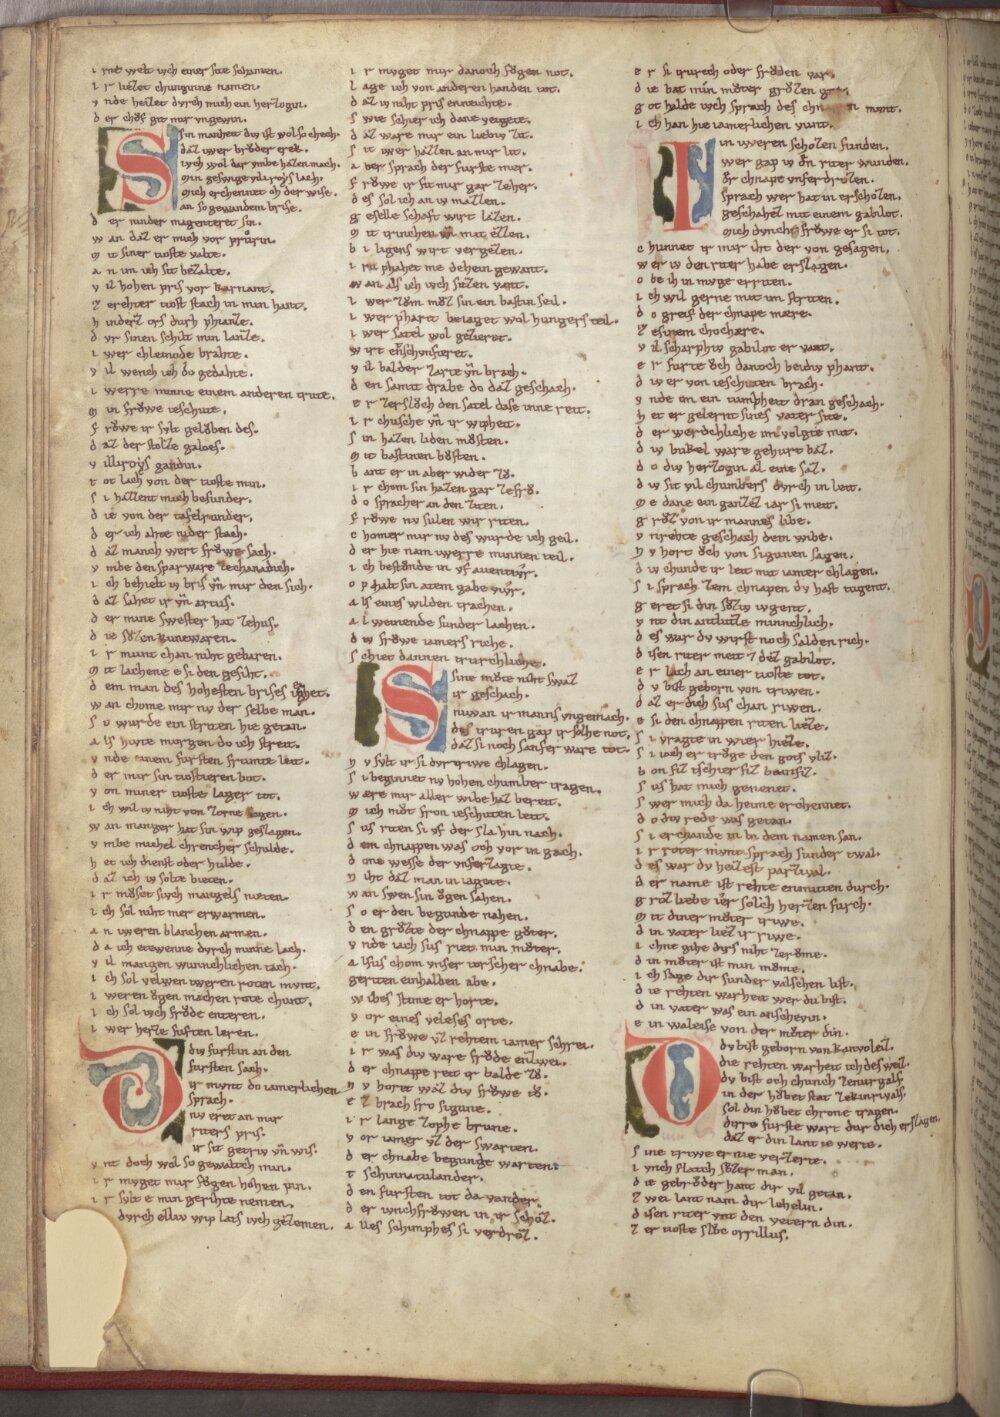 i rne welt wch einer site schamen.
i r liezet chunginne namen.
v nde heilet dvrch mich ein herzogin.
d er chöf git mir vngewin.
S in manheit div ist wol so chech.
daz iwer brvder erek.
iwch wol dar vmbe hazen mach.
min geswige vil roys lach.
mich erchennet oh der wise.
an so gewandem brise.
d er ninder magenteret sin.
w an daz er mich vor prvrin.
m it siner tioste valte.
a n im ich sit bezalte.
v il hohen pris vor karnant.
z erehter tiost stach in min hant.
h inderz ors dvrh phianze.
d vr sinen schilt min lanze.
i wer chleinode brahte.
v il wench ich do gedahte.
i werre minne einem anderen trute.
m in fröwe ieschvte.
f röwe ir svlt gelöben des.
d az der stolze galoes.
v il lirois gandin.
t ot lach von der tioste min.
s i hallent mich besunder.
d ie von der tafelrunder.
d er ich ahte nider stach.
d az manch wert fröwe sach.
v mbe den sparware zechanadich.
i ch behielt iv bris vn mir den sich.
d az sahet ir vn artus.
d er mine swester hat zehus.
d ie sözen kunewaren.
i r munt chan niht gebaren.
m it lachene e si den gesiht.
d em man des hohesten brises vergihet.
w an chome mir nv der selbe man.
s o wurde ein striten hie getan.
a ls hivte morgen do ich streit.
v nde einem fursten frumte leit.
d er mir sin tiostieren bot.
v on miner tioste lager tot.
i ch wil iv niht von zorne sagen.
w an manger hat sin wip geslagen.
v mbe michel chrencher schulde.
h et ich dienst oder hulde.
d az ich iv solte bieten.
i r möset iwch mangels nieten.
i ch sol niht mer erwarmen.
a n iweren blanchen armen.
d a ich etewenne dvrch minne lach.
v il mangen wunnchlichen tach.
i ch sol velwen iweren roten mvnt.
i weren ögen machen rote chunt.
i ch sol iwch fröde enteren.
i wer herze suften leren.
D div furstin an den
fursten sach.
ir mvnt do iamerlichen
sprach.
nv eret an mir
riters pris.
ir sit getriv vn wis.
v nt doch wol so gewaltch min.
i r myget mir fögen hohen pin.
i r svlt e min gerihte nemen.
dvrch elliv wip lats iwch gezemen.
i r myget mir danoch fögen not.
l age ich von anderen handen tot.
d az iv niht pris enneichte.
s wie schier ich dane veigete.
d az ware mir ein liebiv zit.
s it iwer hazzen an mir lit.
a ber sprach der furste mer.
f röwe ir sit mir gar zeher.
d es sol ich an iv mazen.
g eselle schaft wirt lazen.
m it trinchen vn mit ezzen.
b i ligens wirt vergezzen.
i rn phahet me dehein gewant.
w an als ich iwch sitzen vant.
i wer zom möz sin ein bastin seil.
i wer phart beiaget wol hungers teil.
i wer satel wol geziert.
w irt entschvnfieret.
v il balder zarte vn brach.
d en samit drabe do daz geschach.
e r zerslöch den satel dase inne reit.
i r chusche vn ir wipheit.
s in hazen liden mösten.
m it bastinen bösten.
b ant er in aber wider zö.
i r chom sin hazen gar zefrö.
d o spracher an den ziten.
f röwe nv sulen wir riten.
c homer mir nv des wurde ich geil.
d er hie nam iwerre minnen teil.
i ch bestönde in vf aventivr.
o p halt sin atem gabe fivr.
a ls eines wilden trachen.
a l weinende sunder lachen.
d iv fröwe iamers riche.
s chiet dannen trurchliche.
S sine möte niht swaz
ir geschach.
niuwan ir manns vngemach.
des truren gap ir solhe not.
daz si noch sanfter ware tot.
n v svlt ir si dvr triwe chlagen.
s i beginnet nv hohen chumber tragen.
w ere mir aller wibe haz bereit.
m ich möt fron ieschuten leit.
s us riten si vf der sla hin nach.
d em chnappen was och vor in gach.
d one wesse der vnferzagte.
n iht daz man in iagete.
w an swen sin ögen sahen.
s o er den begunde nahen.
d en grözte der chnappe göter.
v nde iach sus riet min möter.
a lsus chom vnser torscher chnabe.
geriten einhalden abe.
w ibes stime er horte.
v or eines veleses orte.
e in fröwe vz rehtem iamer schrei.
i r was div ware fröde enzwei.
d er chnappe reit ir balde zö.
n v horet waz div fröwe tö.
e z brach fro sigune.
i r lange zophe brune.
v or iamer vz der swarten.
d er chnabe begunde warten.
t schinnatulander.
d en fursten tot da vander.
d er iunchfröwen in ir schöz.
a lles schimphes si verdröz.
e r si trurech oder fröden var.
d ie bat min möter grözen gar.
g ot halde iwch sprach des chnappen mvnt.
i ch han hie iamerlichen vunt.
I in iweren schozen funden.
wer gap iv den riter wunden.
Der chnape vnferdrozen.
sprach wer hat in erschozen.
geschahez mit einem gabilot.
mich dvnchet fröwe er si tot.
c hunnet ir mir iht der von gesagen.
w er iv den riter habe erslagen.
o be ih in myge erriten.
i ch wil gerne mit im striten.
d o greif der chnape mære.
z esinem chochære.
v il scharphiv gabilot er vant.
e r furte öch danoch beidiv phant.
d iv er von ieschuten brach.
v nde im ein tumpheit dran geschach.
h et er gelernt sines vater site.
d er werdechliche im volgte mit.
d iv bukel ware gehurt baz.
d o div herzogin al eine saz.
d iv sit vil chumbers dvrch in leit.
m e dane ein ganzez iar si meit.
g röz von ir mannes libe.
v nrehte geschach dem wibe.
n v hort öch von sigunen sagen.
d iv chunde ir leit mit iamer chlagen.
s i sprach zem chnapen dv hast tugent.
g eret si din söziv iugent.
v nt din antluzze minnchlich.
d es war dv wirst noch salden rich.
d isen riter meit der gabilot.
e r lach an einer tioste tot.
d v bist geborn von triwen.
d az er dich sus chan riwen.
e si den chnappen riten lieze.
s i vragte in wier hieze.
s i iach er tröge den gots vliz.
b on fiz tscher fiz beaufiz.
s us hat mich genenet.
s wer mich da heime erchennet.
d o div rede was getan.
s i erchande in bi dem namen san.
i r roter mvnt sprach sunder twal.
d es war dv heizest parzival.
d er name ist rehte enmitten durch.
g röz liebe ier solich herzen furch.
m it diner möter triwe.
d in vater liez ir riwe.
i chne gihe dirs niht zeröme.
d in möter ist min möme.
i ch sage dir sunder valschen list.
d ie rehten warheit wer du bist.
d in vater was ein anschevin.
e in waleise von der möter din.
D dv bist geborn von kanvoleiz.
die rehten warheit ich des weiz.
dv bist och chunich zenurgals.
in der höbet stat zekinrivals.
sol din höbet chrone tragen.
dirre furste wart dur dich erslagen.
daz er din lant ie werte.
s ine triwe er nie verzerte.
i vnch flætch sözer man.
d ie gebröder hant dir vil getan.
z wei lant nam dir lehelin.
d isen riter vnt den vetern din.
z er tioste slöc orrillus.